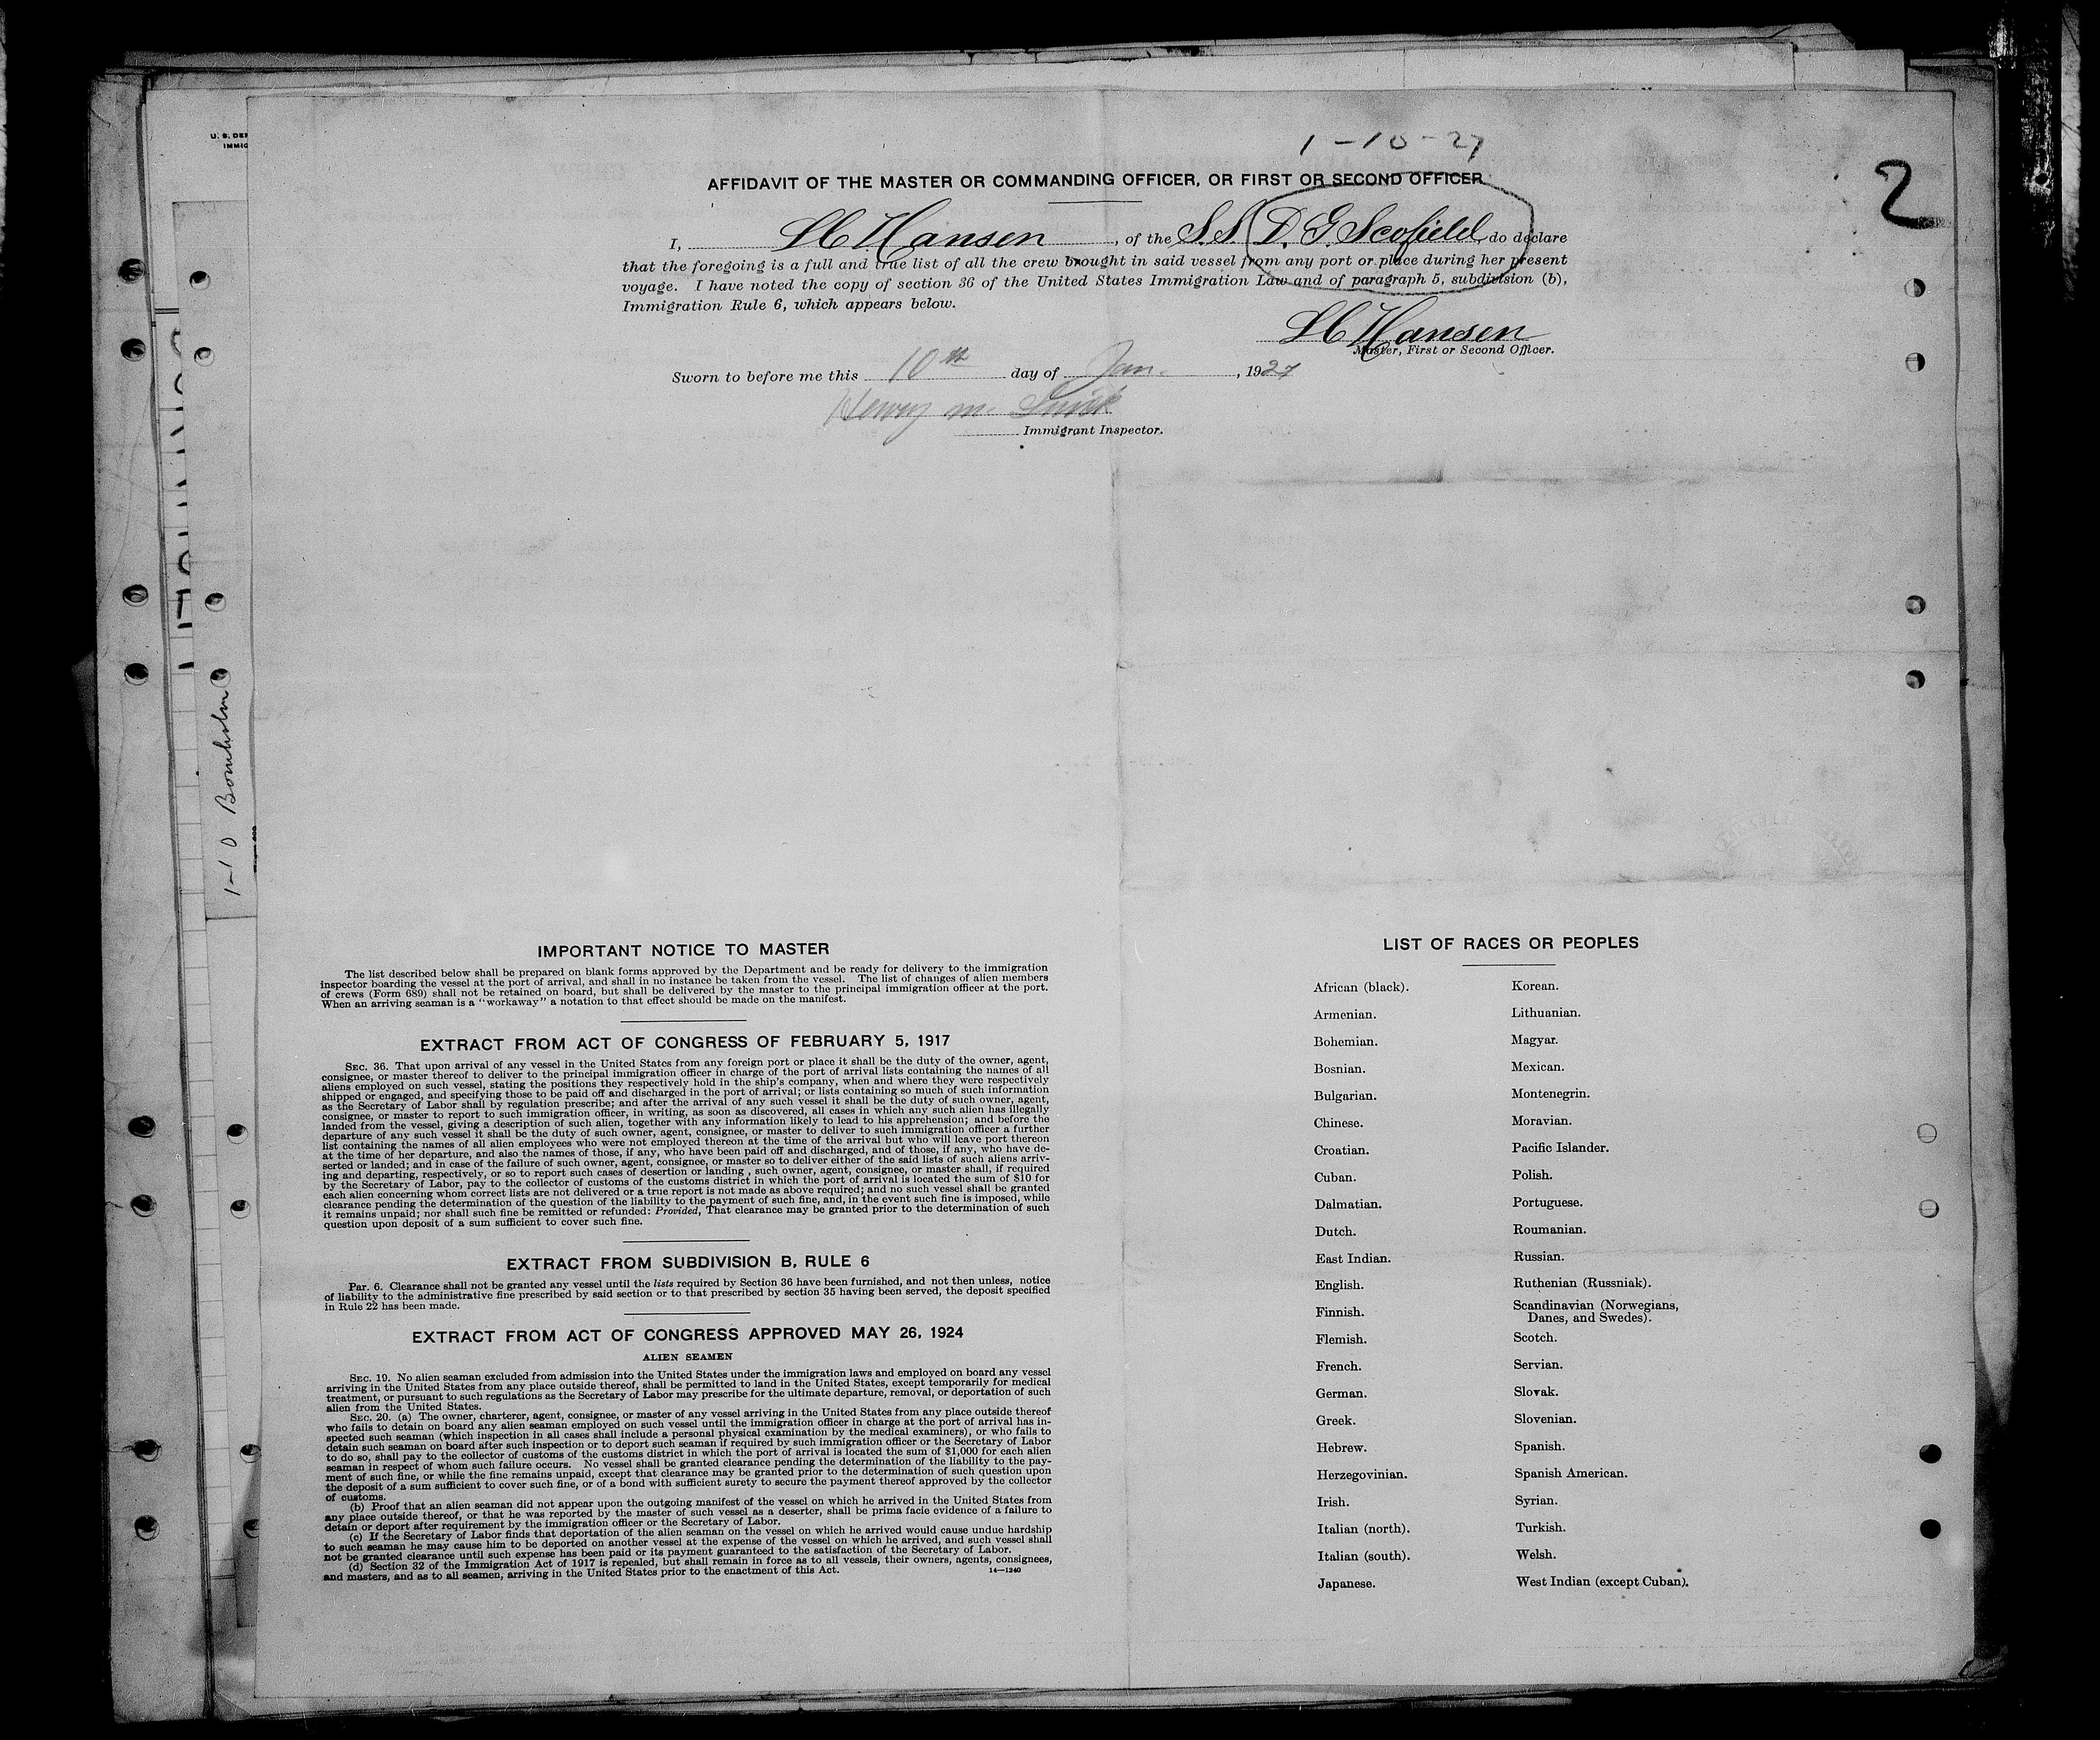 U. S. DE
IMMIG
1-10-27
2
AFFIDAVIT OF THE MASTER OR COMMANDING OFFICER, OR FIRST OR SECOND OFFICER
I, Hansen, of the S.S. D. G. Scofield, do declare
that the foregoing is a full and true list of all the crew brought in said vessel from any port or place during her present
voyage. I have noted the copy of section 36 of the United States Immigration Law and of paragraph 5, subdivision (b),
Immigration Rule 6, which appears below.
Hansen
Master, First or Second Officer.
Sworn to before me this 10th day of Jan., 1927
Henry M.
Immigrant Inspector.
1-10 Bornholm
IMPORTANT NOTICE TO MASTER
The list described below shall be prepared on blank forms approved by the Department and be ready for delivery to the immigration
inspector boarding the vessel at the port of arrival, and shall in no instance be taken from the vessel. The list of changes of alien members
of crews (Form 689) shall not be retained on board, but shall be delivered by the master to the principal immigration officer at the port.
When an arriving seaman is a "workaway" a notation to that effect should be made on the manifest.
EXTRACT FROM ACT OF CONGRESS OF FEBRUARY 5, 1917
SEC. 36. That upon arrival of any vessel in the United States from any foreign port or place it shall be the duty of the owner, agent,
consignee, or master thereof to deliver to the principal immigration officer in charge of the port of arrival lists containing the names of all
aliens employed on such vessel, stating the positions they respectively hold in the ship's company, when and where they were respectively
shipped or engaged, and specifying those to be paid off and discharged in the port of arrival; or lists containing so much of such information
as the Secretary of Labor shall by regulation prescribe; and after the arrival of any such vessel it shall be the duty of such owner, agent,
consignee, or master to report to such immigration officer, in writing, as soon as discovered, all cases in which any such alien has illegally
landed from the vessel, giving a description of such alien, together with any information likely to lead to his apprehension; and before the
departure of any such vessel it shall be the duty of such owner, agent, consignee, or master to deliver to such immigration officer a further
list containing the names of all alien employees who were not employed thereon at the time of the arrival but who will leave port thereon
at the time of her departure, and also the names of those, if any, who have been paid off and discharged, and of those, if any, who have de-
serted or landed; and in case of the failure of such owner, agent, consignee, or master so to deliver either of the said lists of such aliens arriv-
ing and departing, respectively, or so to report such cases of desertion or landing , such owner, agent, consignee, or master shall, if required
by the Secretary of Labor, pay to the collector of customs of the customs district in which the port of arrival is located the sum of $10 for
each alien concerning whom correct lists are not delivered or a true report is not made as above required; and no such vessel shall be granted
clearance pending the determination of the question of the liability to the payment of such fine, and, in the event such fine is imposed, while
it remains unpaid; nor shall such fine be remitted or refunded: Provided, That clearance may be granted prior to the determination of such
question upon deposit of a sum sufficient to cover such fine.
EXTRACT FROM SUBDIVISION B, RULE 6
Par. 6. Clearance shall not be granted any vessel until the lists required by Section 36 have been furnished, and not then unless, notice
of liability to the administrative fine prescribed by said section or to that prescribed by section 35 having been served, the deposit specified
in Rule 22 has been made.
EXTRACT FROM ACT OF CONGRESS APPROVED MAY 26, 1924
ALIEN SEAMEN
SEC. 19. No alien seaman excluded from admission into the United States under the immigration laws and employed on board any vessel
arriving in the United States from any place outside thereof, shall be permitted to land in the United States, except temporarily for medical
treatment, or pursuant to such regulations as the Secretary of Labor may prescribe for the ultimate departure, removal, or deportation of such
alien from the United States.
SEC. 20. (a) The owner, charterer, agent, consignee, or master of any vessel arriving in the United States from any place outside thereof
who fails to detain on board any alien seaman employed on such vessel until the immigration officer in charge at the port of arrival has in-
spected such seaman (which inspection in all cases shall include a personal physical examination by the medical examiners), or who fails to
detain such seaman on board after such inspection or to deport such seaman if required by such immigration officer or the Secretary of Labor
to do so, shall pay to the collector of customs of the customs district in which the port of arrival is located the sum of $1,000 for each alien
seaman in respect of whom such failure occurs. No vessel shall be granted clearance pending the determination of the liability to the pay-
ment of such fine, or while the fine remains unpaid, except that clearance may be granted prior to the determination of such question upon
the deposit of a sum sufficient to cover such fine, or of a bond with sufficient surety to secure the payment thereof approved by the collector
of customs.
(b) Proof that an alien seaman did not appear upon the outgoing manifest of the vessel on which he arrived in the United States from
any place outside thereof, or that he was reported by the master of such vessel as a deserter, shall be prima facie evidence of a failure to
detain or deport after requirement by the immigration officer or the Secretary of Labor.
(c) If the Secretary of Labor finds that deportation of the alien seaman on the vessel on which he arrived would cause undue hardship
to such seaman he may cause him to be deported on another vessel at the expense of the vessel on which he arrived, and such vessel shall
not be granted clearance until such expense has been paid or its payment guaranteed to the satisfaction of the Secretary of Labor.
(d) Section 32 of the Immigration Act of 1917 is repealed, but shall remain in force as to all vessels, their owners, agents, consignees,
and masters, and as to all seamen, arriving in the United States prior to the enactment of this Act.
14—1240
LIST OF RACES OR PEOPLES
African (black).
Armenian.
Bohemian.
Bosnian.
Bulgarian.
Chinese.
Croatian.
Cuban.
Dalmatian.
Dutch.
East Indian.
English.
Finnish.
Flemish.
French.
German.
Greek.
Hebrew.
Herzegovinian.
Irish.
Italian (north).
Italian (south).
Japanese.
Korean.
Lithuanian.
Magyar.
Mexican.
Montenegrin.
Moravian.
Pacific Islander.
Polish.
Portuguese.
Roumanian.
Russian.
Ruthenian (Russniak).
Scandinavian (Norwegians,
Danes, and Swedes).
Scotch.
Servian.
Slovak.
Slovenian.
Spanish.
Spanish American.
Syrian.
Turkish.
Welsh.
West Indian (except Cuban).